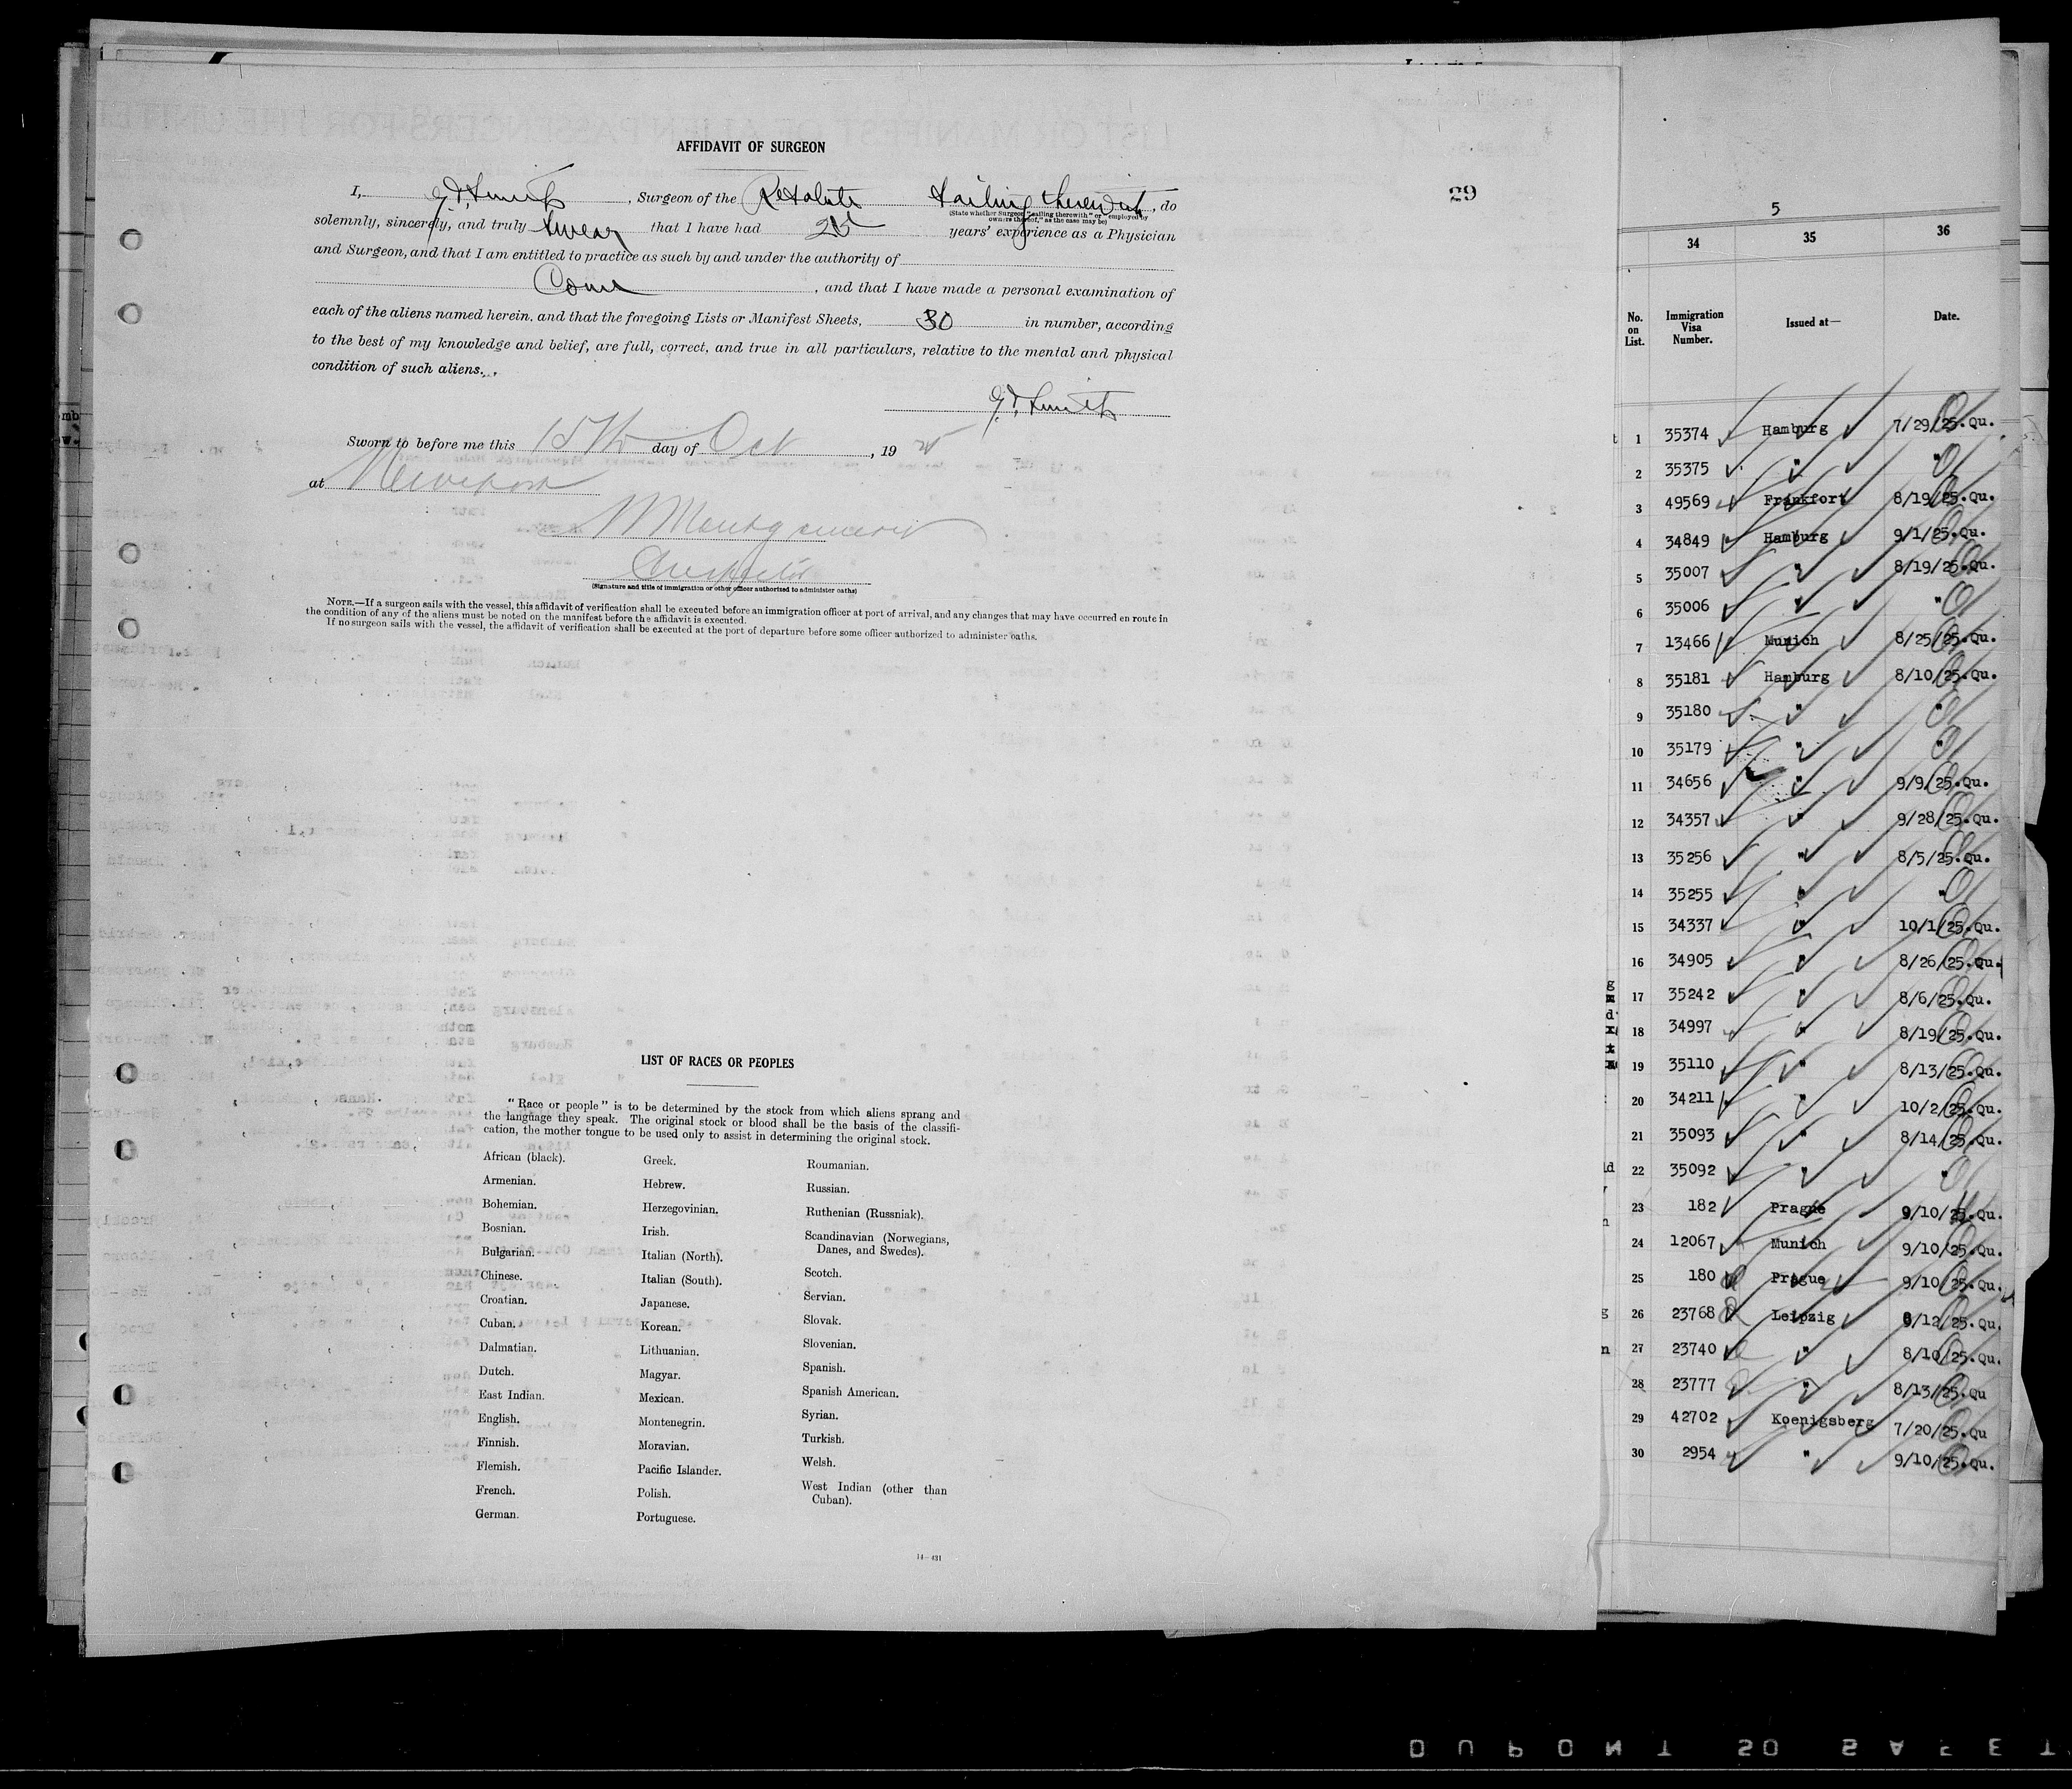 AFFIDAVIT OF SURGEON
29
I, Smith, Surgeon of the Resolute sailing therewith, do
(State whether Surgeon "sailing therewith" or "employed by
owners thereof," as the case may be)
solemnly, sincerely, and truly swear that I have had 25 years' experience as a Physician
and Surgeon, and that I am entitled to practice as such by and under the authority of
Conn, and that I have made a personal examination of
each of the aliens named herein, and that the foregoing Lists or Manifest Sheets, 30 in number, according
to the best of my knowledge and belief, are full, correct, and true in all particulars, relative to the mental and physical
condition of such aliens.
Smith
Sworn to before me this 15th day of Oct, 1925
at New York
Montgomery
Inspector
(Signature and title of immigration or other officer authorized to administer oaths)
NOTE.—If a surgeon sails with the vessel, this affidavit of verification shall be executed before an immigration officer at port of arrival, and any changes that may have occurred en route in
the condition of any of the aliens must be noted on the manifest before the affidavit is executed.
If no surgeon sails with the vessel, the affidavit of verification shall be executed at the port of departure before some officer authorized to administer oaths.
LIST OF RACES OR PEOPLES
"Race or people" is to be determined by the stock from which aliens sprang and
the language they speak. The original stock or blood shall be the basis of the classifi-
cation, the mother tongue to be used only to assist in determining the original stock.
African (black).
Armenian.
Bohemian.
Bosnian.
Bulgarian.
Chinese.
Croatian.
Cuban.
Dalmatian.
Dutch.
East Indian.
English.
Finnish.
Flemish.
French.
German.
Greek.
Hebrew.
Herzegovinian.
Irish.
Italian (North).
Italian (South).
Japanese.
Korean.
Lithuanian.
Magyar.
Mexican.
Montenegrin.
Moravian.
Pacific Islander.
Polish.
Portuguese.
Roumanian.
Russian.
Ruthenian (Russniak).
Scandinavian (Norwegians,
Danes, and Swedes).
Scotch.
Servian.
Slovak.
Slovenian.
Spanish.
Spanish American.
Syrian.
Turkish.
Welsh.
West Indian (other than
Cuban).
14—431
5
34 35 36
No. on List. Immigration Visa Number. Issued at— Date.
1 35374 Hamburg 7/29/25.Qu.
2 35375 " "
3 49569 Frankfort 8/19/25.Qu.
4 34849 Hamburg 9/1/25.Qu.
5 35007 " 8/19/25.Qu.
6 35006 " "
7 13466 Munich 8/25/25.Qu.
8 35181 Hamburg 8/10/25.Qu.
9 35180 " "
10 35179 " "
11 34656 " 9/9/25.Qu.
12 34357 " 9/28/25.Qu.
13 35256 " 8/5/25.Qu.
14 35255 " "
15 34337 " 10/1/25.Qu.
16 34905 " 8/26/25.Qu.
17 35242 " 8/6/25.Qu.
18 34997 " 8/19/25.Qu.
19 35110 " 8/13/25.Qu.
20 34211 " 10/2/25.Qu.
21 35093 " 8/14/25.Qu.
22 35092 " "
23 182 Prague 9/10/25.Qu.
24 12067 Munich 9/10/25.Qu.
25 180 Prague 9/10/25.Qu.
26 23768 Leipzig /12/25.Qu.
27 23740 " 8/10/25.Qu.
28 23777 " 8/13/25.Qu
29 42702 Koenigsberg 7/20/25.Qu
30 2954 " 9/10/25.Qu.
DUPONT SO SAFET